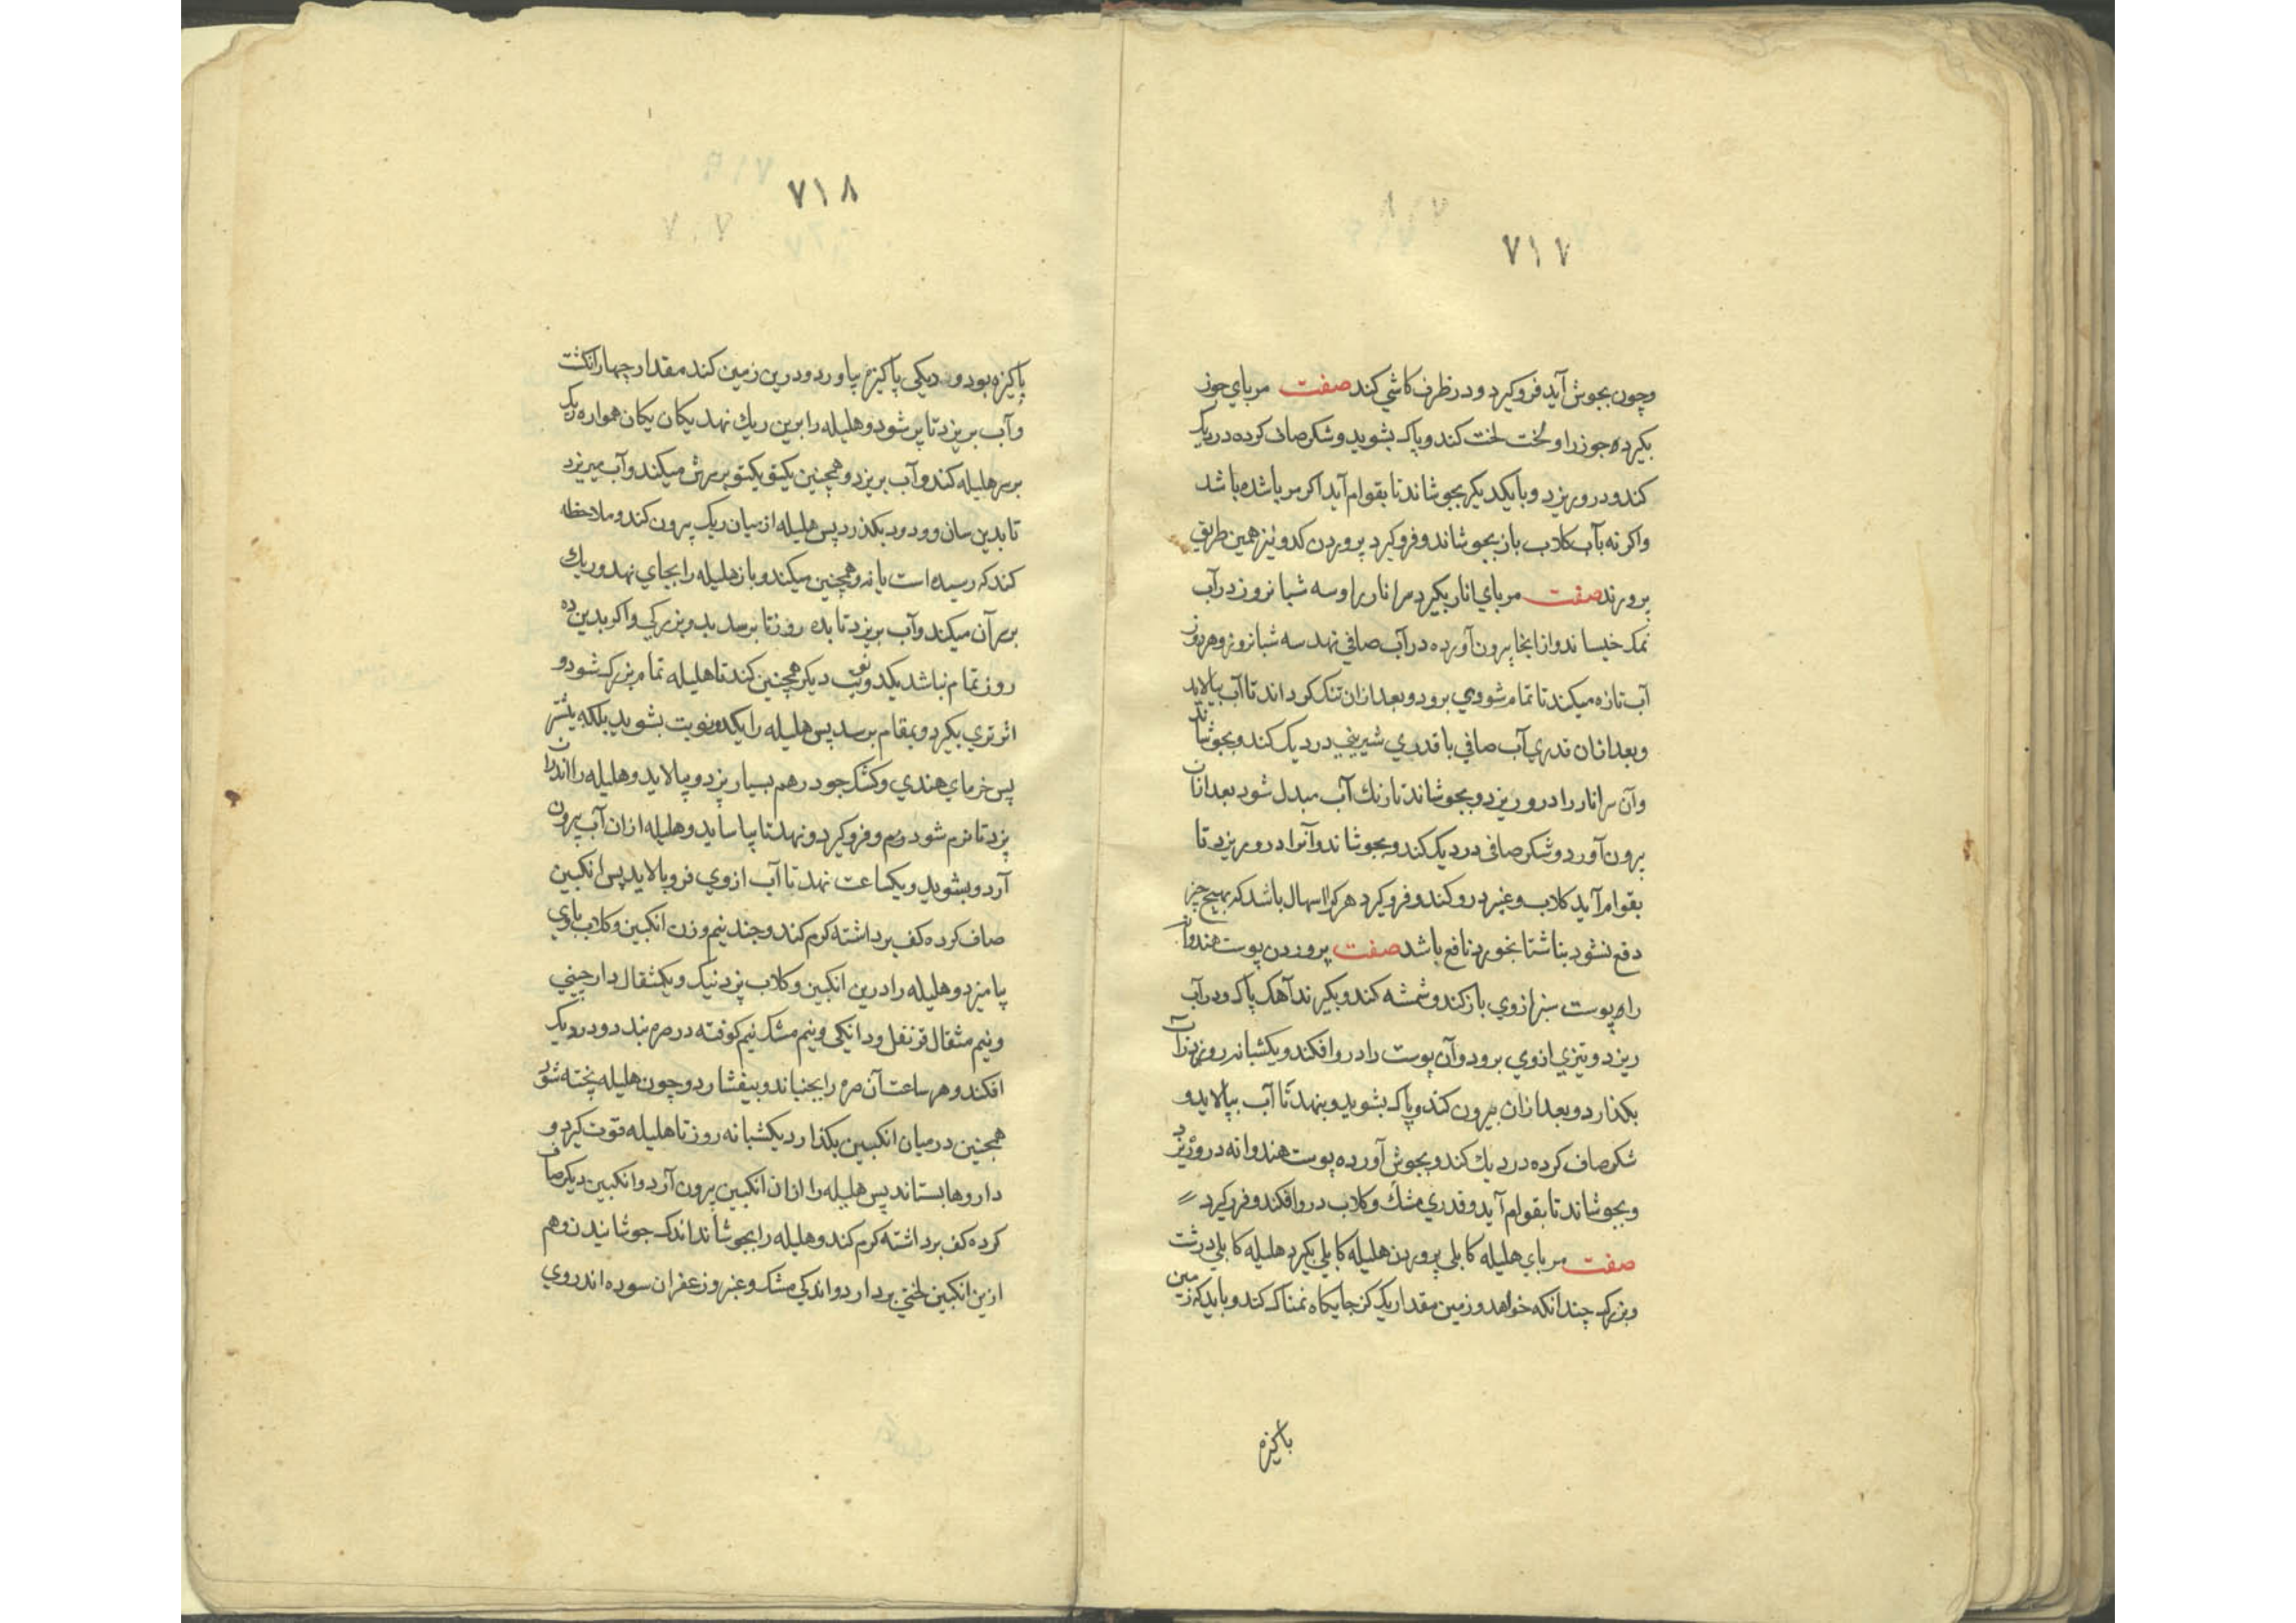 ۷۱۷
وچون بجوش آید فروکیرد ودر ظرف کاشی کند صفت مربای جوز
بکیرده جوز را و لخت لخت کند و پاک بشوید و شکر صاف کرده در دیک
کند ودرو ریزد وبایکدیکر بجوشاند تا بقوام آید اکر مربا شده باشد
واکرنه بآب کلاب باز بجوشاند وفروکیرد پروردن کدو نیز همین طریق
پرورند صفت مربای انار بکیرد سر انار را وسه شبانروز در آب
نمک خیساند وازانجا بیرون آورده در آب صافی نهد سه شبانروز وهر روز
آب تازه میکند تا تمام شوری برود وبعد ازان تنک کرداند تا آب بپالاید
وبعد ازان قدری آب صافی با قدری شیرینی در دیک کند وبجوشاند
وآن سر انار را درو ریزد وبجوشاند تا رنک آب مبدل شود بعد ازان
بیرون آورد وشکر صافی در دیک کند وبجوشاند وآنرا درو ریزد تا
بقوام آید کلاب وعنبر درو کند وفروکیرد هرکرا اسهال باشد که بهیچ چیز
دفع نشود بناشتا بخورد نافع باشد صفت پروردن پوست هندوانه
راه پوست سبز ازوی باز کند وشمشه کند وبکیرند آهک پاک ودر آب
ریزد وتیزی ازوی برود وآن پوست را درو افکند ویکشبانه روز در آن آب
بکذارد وبعد ازان بیرون کند وپاک بشوید وبنهد تا آب بپالاید و
شکر صاف کرده در دیک کند وبجوش آورده پوست هندوانه درو ریزد
وبجوشاند تا بقوام آید وقدری مشک وکلاب درو افکند وفروکیرد
صفت مربای هلیله کابلی پروردن هلیله کابلی بکیرد هلیله کابلی درشت
وبزرک چندانکه خواهد وزمین مقدار یک کز جایکاه نمناک کند وباید که زمین
پاکیزه
۷۱۸
پاکیزه بود و دیکی پاکیزه بیاورد ودرین زمین کند مقدار چهار انکشت
وآب بریزد تا پر شود وهلیله را برین ریک نهد یکان یکان همواره ریک
بر سر هلیله کند وآب بریزد وهمچنین یکتو یکتو بر سرش میکند وآب میریزد
تا بدین سان بکذرد پس هلیله از میان ریک بیرون کند وملاحظه
کند که رسیده است یا نه وهمچنین میکند وباز هلیله را بجای نهد وریک
بر سر آن میکند وآب بریزد تا بده روز تا برسد واکر بدین ده
روز تمام نباشد یکدو نوبت دیکر همچنین کند تا هلیله تمام بزرک شود و
اثر تری بکیرد وبمقام برسد پس هلیله را یکدو نوبت بشوید بلکه بیشتر
پس خرمای هندی وکشک جو درهم بسیار پزد وبپالاید وهلیله را اندران
پزد تا نرم شود وفروکیرد ونهد تا بیاساید وهلیله ازان آب بیرون
آرد وبشوید ویکساعت نهد تا آب ازوی فروپالاید پس انکبین
صاف کرده کف برداشته کرم کند وچند نیم وزن انکبین وکلاب باوی
بیامیزد وهلیله را درین انکبین وکلاب پزد نیک ویکمثقال دارچینی
ونیم مثقال قرنفل ودانکی ونیم مشک نیم کوفته در صره بندد ودر دیک
افکند وهر ساعت آن صره را بجنباند وبیفشارد وچون هلیله پخته شود
همچنین در میان انکبین بکذارد یکشبانه روز تا هلیله قوت کیرد و
داروها بستاند پس هلیله را ازان انکبین بیرون آرد وانکبین دیکر صاف
کرده کف برداشته کرم کند وهلیله را بجوشاند اندک جوشانیدن وهم
ازین انکبین لختی بردارد واندکی مشک وعنبر وزعفران سوده اندر وی